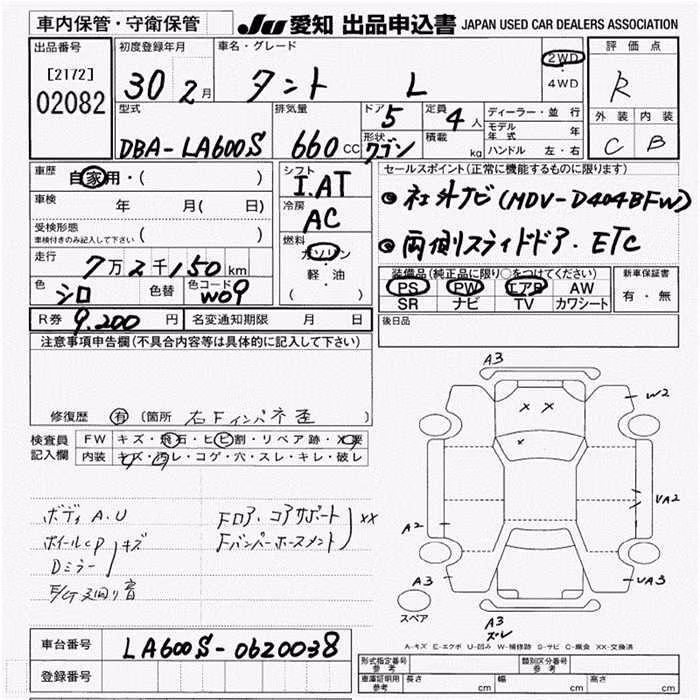 車内保管・守衛保管
JU 愛知 出品申込書 JAPAN USED CAR DEALERS ASSOCIATION
出品番号
[2172]
02082
初度登録年月
30 2月
車名・グレード
タント L
2WD
・
4WD
評価点
R
外装 内装
C B
型式
DBA-LA600S
排気量
660 CC
ドア 5
形状 ワゴン
定員 4 人
積載 kg
ディーラー・並行
モデル年式 年
ハンドル 左・右
車歴
自家用・( )
車検 年 月( 日)
受検形態
車検付きのみ記入して下さい ( )
走行
7万2千150km
色 シロ 色替 色コード W09
R券 9.200 円 名変通知期限 月 日
シフト
I.AT
冷房
AC
燃料
ガソリン
・
軽・油
( )
セールスポイント(正常に機能するものに限ります)
◎ 社外ナビ(MDV-D404BFW)
◎ 両側スライドドア. ETC
装備品(純正品に限り○をつけてください)
PS PW エアB AW
SR ナビ TV カワシート
新車保証書
有・無
後日品
注意事項申告欄(不具合内容等は具体的に記入して下さい)
修復歴 有 (箇所 右Fインパネ歪 )
検査員記入欄
FW キズ・飛石・ヒビ割・リペア跡・X要
内装 キズ・汚レ・コゲ・穴・スレ・キレ・破レ
ボディ A.U
ホイールCP
Dミラー
キズ
Fロア.コアサポート
Fバンパーホースメント
XX
A3
W2
X X
X
UA2
A2
A3
UA3
A3
ズレ
スペア
A-キズ E-エクボ U-凹み W-補修跡 S-サビ C-腐食 XX-交換済
車台番号 LA600S-0620038
登録番号
形式指定番号
参考
類別区分番号
参考
車庫証明用
参考
長さ cm 幅 cm 高さ cm